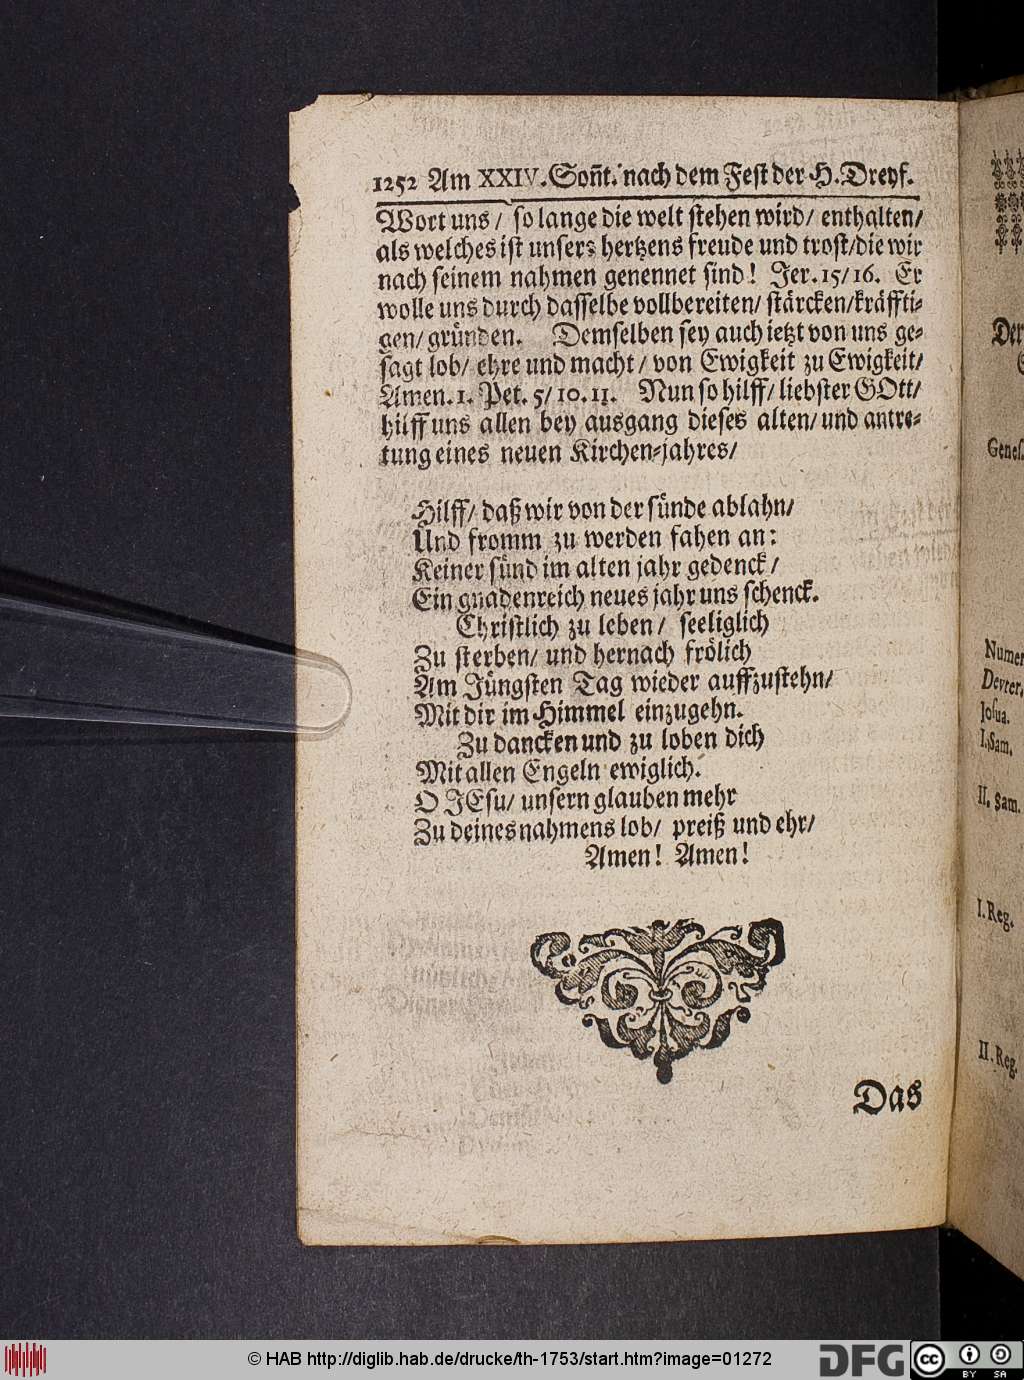 1252 Am XXIV. Soñt. nach dem Fest der H. Dreyf.
Wort uns / so lange die welt stehen wird / enthalten /
als welches ist unsers hertzens freude und trost / die wir
nach seinem nahmen genennet sind! Jer. 15 / 16. Er
wolle uns durch dasselbe vollbereiten / stärcken / kräffti-
gen / gründen. Demselben sey auch ietzt von uns ge-
sagt lob / ehre und macht / von Ewigkeit zu Ewigkeit /
Amen. 1. Pet. 5 / 10. 11. Nun so hilff / liebster GOtt /
hilff uns allen bey ausgang dieses alten / und antre-
tung eines neuen Kirchen-jahres /
Hilff / daß wir von der sünde ablahn /
Und fromm zu werden fahen an:
Keiner sünd im alten jahr gedenck /
Ein gnadenreich neues jahr uns schenck.
Christlich zu leben / seeliglich
Zu sterben / und hernach frölich
Am Jüngsten Tag wieder auffzustehn /
Mit dir im Himmel einzugehn.
Zu dancken und zu loben dich
Mit allen Engeln ewiglich.
O JEsu / unsern glauben mehr
Zu deines nahmens lob / preiß und ehr /
Amen! Amen!
Das
Der
Genes.
Numer
Devter.
Josua.
I. Sam.
II. Sam.
I. Reg.
II. Reg.
© HAB http://diglib.hab.de/drucke/th-1753/start.htm?image=01272
DFG
cc BY SA